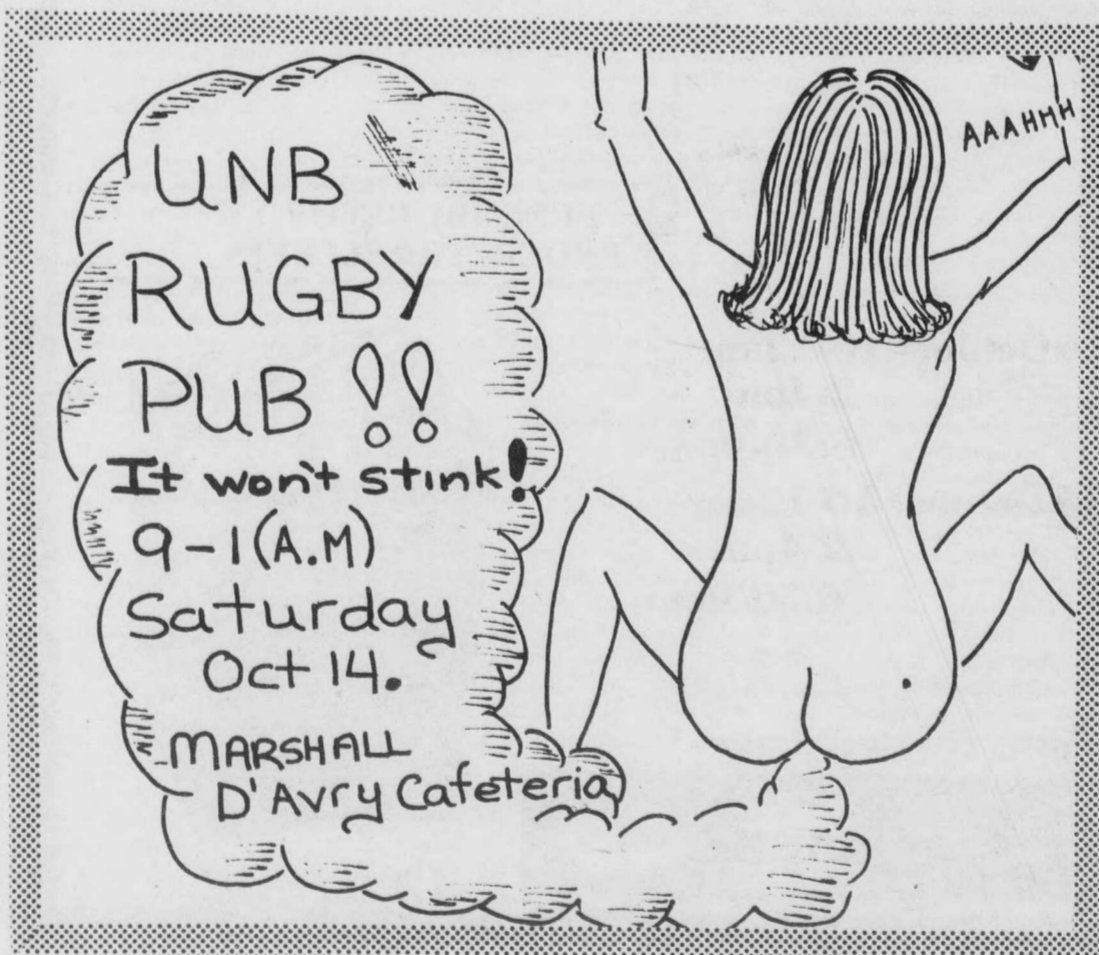 UNB
RUGBY
PUB !!
It won't stink!
9-1(A.M)
Saturday
Oct 14.
MARSHALL
D'Avry Cafeteria
AAAHMH